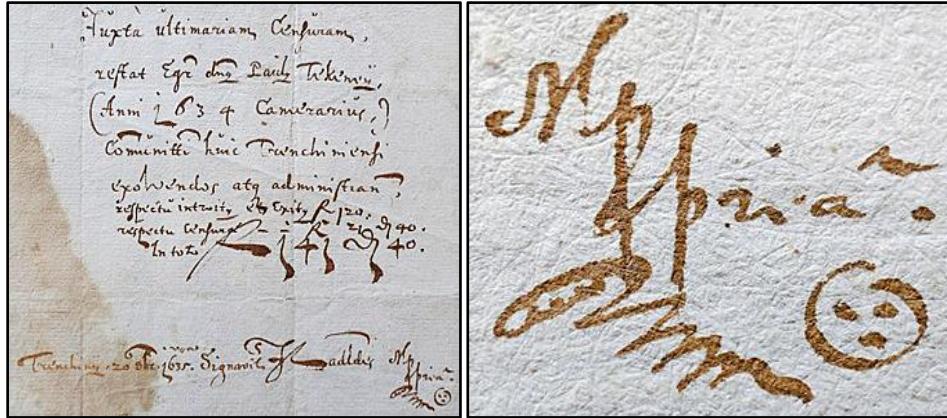 Juxta ultimariam Censuram,
restat Egr dnus Paulus Tekeney
(Anni 1634 Camerarius,)
Comunitti huic Trenchiniensi
exolvendos atq administran,
respectu introity et Exity f 120.
respectu Censurae f 21 d 40.
In toto f 141 d 40.
Trenchiny 20 1635. Signavit Ladldes Mp
ppria.
Mp
ppria.